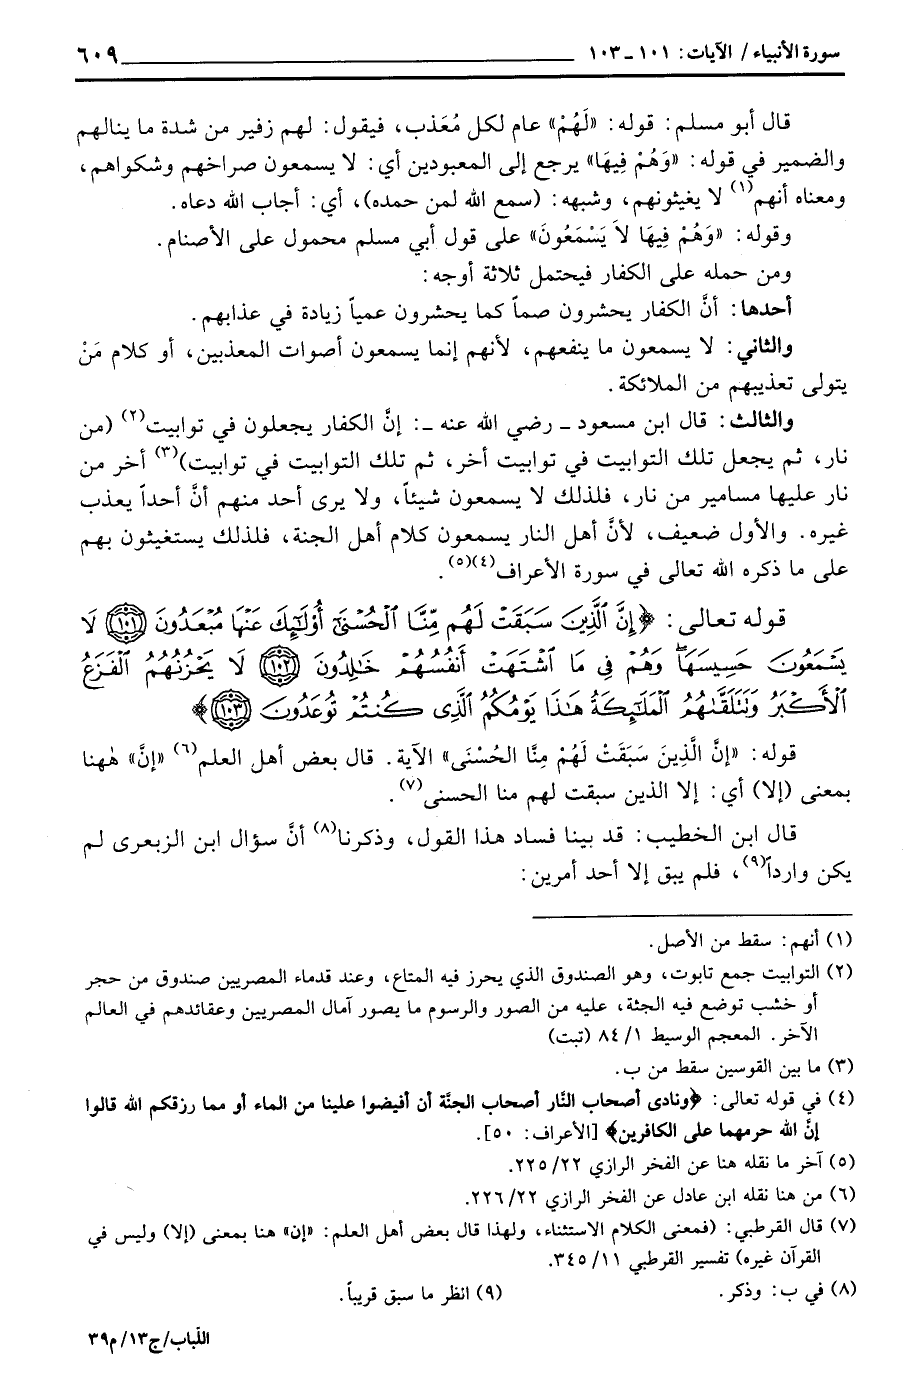 سورة الأنبياء / الآيات: ١٠١ ـ ١٠٣ ٦٠٩
قال أبو مسلم: قوله: «لَهُمْ» عام لكل مُعَذب، فيقول: لهم زفير من شدة ما ينالهم
والضمير في قوله: «وَهُمْ فِيهَا» يرجع إلى المعبودين أي: لا يسمعون صراخهم وشكواهم،
ومعناه أنهم(١) لا يغيثونهم، وشبهه: (سمع الله لمن حمده)، أي: أجاب الله دعاه.
وقوله: «وَهُمْ فِيهَا لاَ يَسْمَعُونَ» على قول أبي مسلم محمول على الأصنام.
ومن حمله على الكفار فيحتمل ثلاثة أوجه:
أحدها: أنَّ الكفار يحشرون صماً كما يحشرون عمياً زيادة في عذابهم.
والثاني: لا يسمعون ما ينفعهم، لأنهم إنما يسمعون أصوات المعذبين، أو كلام مَنْ
يتولى تعذيبهم من الملائكة.
والثالث: قال ابن مسعود ـ رضي الله عنه ـ: إنَّ الكفار يجعلون في توابيت(٢) (من
نار، ثم يجعل تلك التوابيت في توابيت أخر، ثم تلك التوابيت في توابيت)(٣) أخر من
نار عليها مسامير من نار، فلذلك لا يسمعون شيئاً، ولا يرى أحد منهم أنَّ أحداً يعذب
غيره. والأول ضعيف، لأنَّ أهل النار يسمعون كلام أهل الجنة، فلذلك يستغيثون بهم
على ما ذكره الله تعالى في سورة الأعراف(٤)(٥).
قوله تعالى: ﴿إِنَّ ٱلَّذِينَ سَبَقَتْ لَهُم مِّنَّا ٱلْحُسْنَىٰٓ أُوْلَٰٓئِكَ عَنْهَا مُبْعَدُونَ ١٠١ لَا
يَسْمَعُونَ حَسِيسَهَا ۖ وَهُمْ فِى مَا ٱشْتَهَتْ أَنفُسُهُمْ خَٰلِدُونَ ١٠٢ لَا يَحْزُنُهُمُ ٱلْفَزَعُ
ٱلْأَكْبَرُ وَتَتَلَقَّىٰهُمُ ٱلْمَلَٰٓئِكَةُ هَٰذَا يَوْمُكُمُ ٱلَّذِى كُنتُمْ تُوعَدُونَ ١٠٣﴾
قوله: «إنَّ الَّذِينَ سَبَقَتْ لَهُمْ مِنَّا الحُسْنَى» الآية. قال بعض أهل العلم(٦) «إنَّ» هٰهنا
بمعنى (إلا) أي: إلا الذين سبقت لهم منا الحسنى(٧).
قال ابن الخطيب: قد بينا فساد هذا القول، وذكرنا(٨) أنَّ سؤال ابن الزبعرى لم
يكن وارداً(٩)، فلم يبق إلا أحد أمرين:
(١) أنهم: سقط من الأصل.
(٢) التوابيت جمع تابوت، وهو الصندوق الذي يحرز فيه المتاع، وعند قدماء المصريين صندوق من حجر
أو خشب توضع فيه الجثة، عليه من الصور والرسوم ما يصور آمال المصريين وعقائدهم في العالم
الآخر. المعجم الوسيط ١/ ٨٤ (تبت)
(٣) ما بين القوسين سقط من ب.
(٤) في قوله تعالى: ﴿ونادى أصحاب النَّار أصحاب الجنَّة أن أفيضوا علينا من الماء أو مما رزقكم الله قالوا
إنَّ الله حرمهما على الكافرين﴾ [الأعراف: ٥٠].
(٥) آخر ما نقله هنا عن الفخر الرازي ٢٢/ ٢٢٥.
(٦) من هنا نقله ابن عادل عن الفخر الرازي ٢٢/ ٢٢٦.
(٧) قال القرطبي: (فمعنى الكلام الاستثناء، ولهذا قال بعض أهل العلم: «إن» هنا بمعنى (إلا) وليس في
القرآن غيره) تفسير القرطبي ١١/ ٣٤٥.
(٨) في ب: وذكر. (٩) انظر ما سبق قريباً.
اللّباب/ج١٣/م٣٩